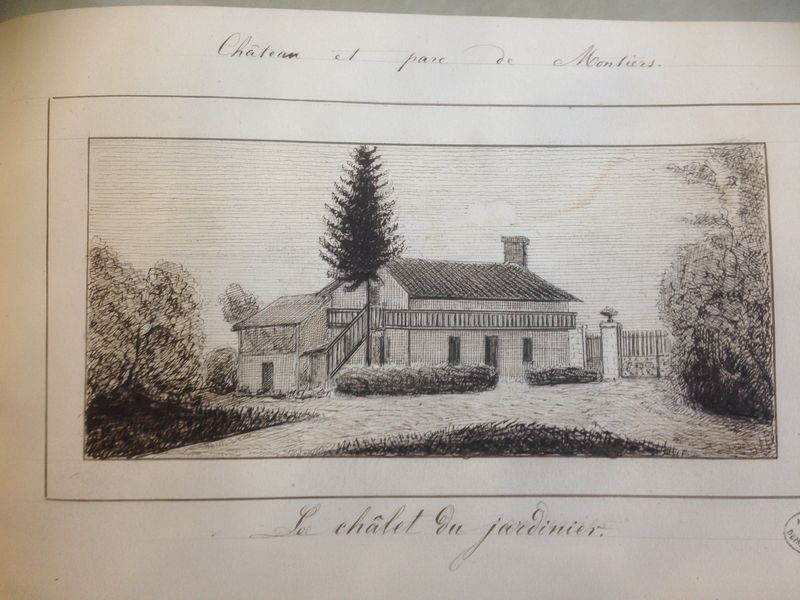 Château et parc de Montiers.
Le châlet du jardinier.